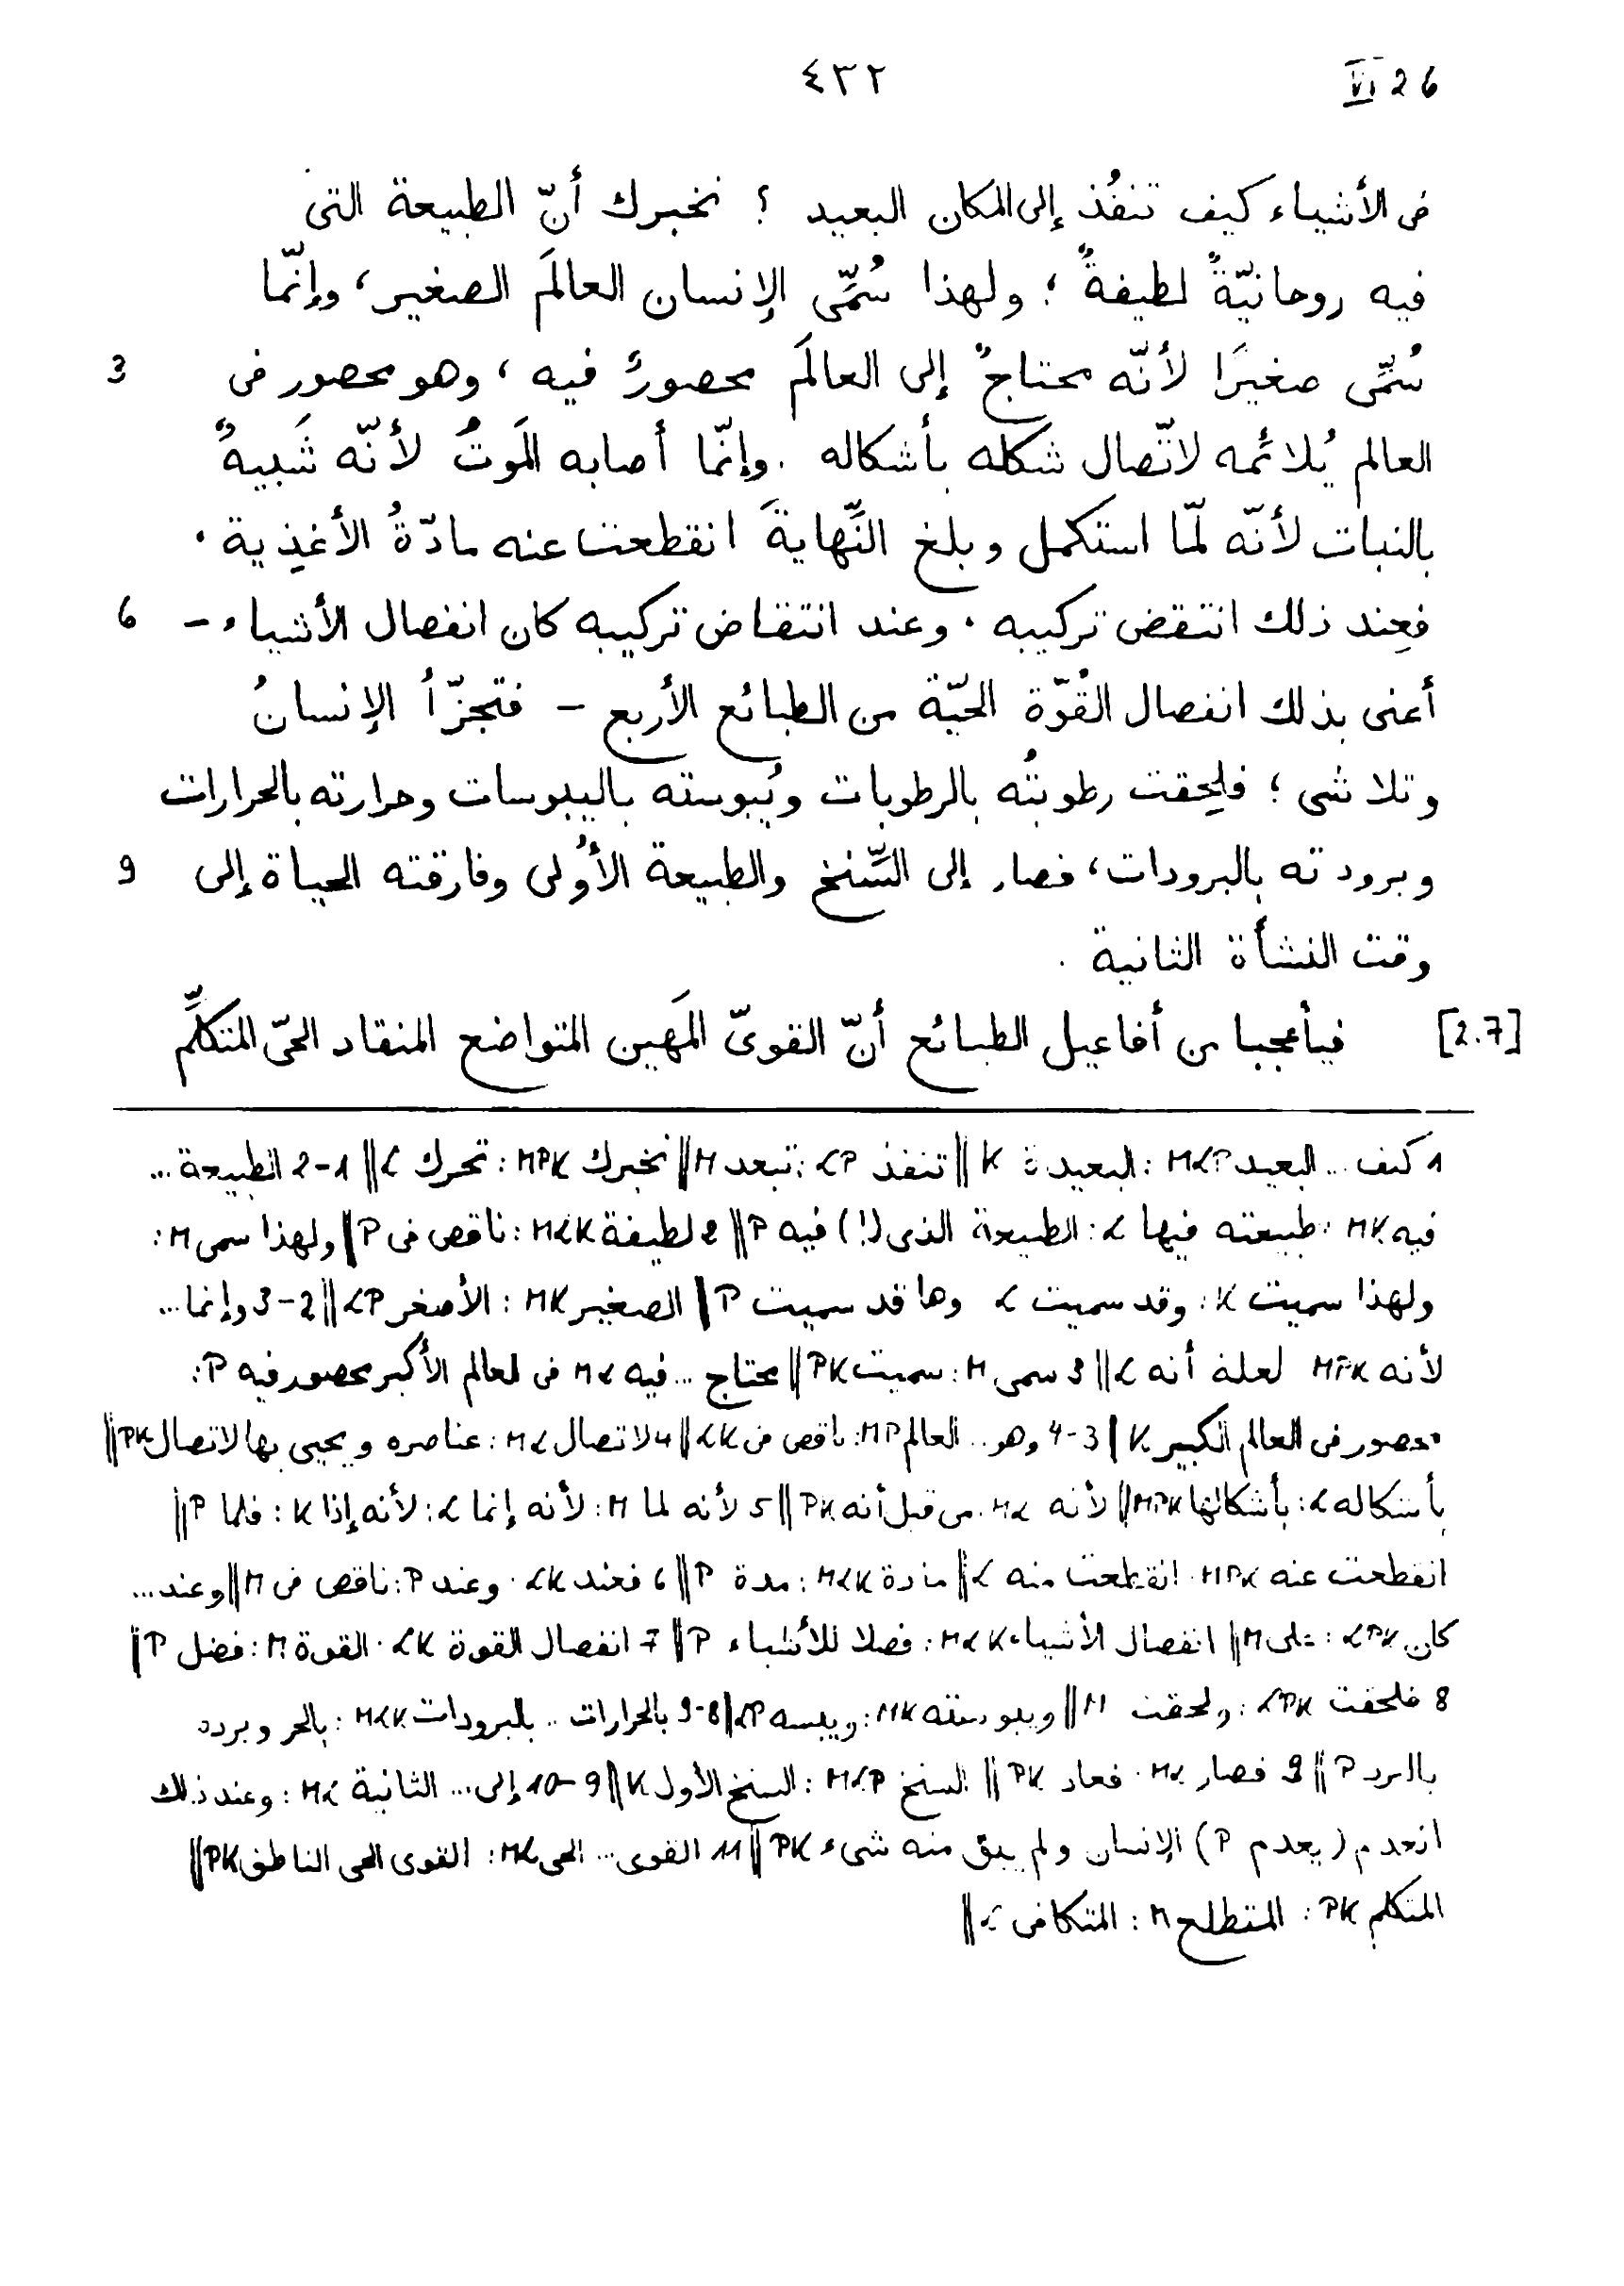 ٤٣٢
VI 26
فى الأشياء كيف تنفُذ إلى المكان البعيد ؟ نخبرك أنّ الطبيعة التى
فيه روحانيّةٌ لطيفةٌ ؛ ولهذا سُمِّى الإنسان العالَم الصغير، وإنّما
سُمِّى صغيرًا لأنّه محتاجٌ إلى العالَم محصورٌ فيه ، وهو محصور فى 3
العالم يُلائمه لاتّصال شكله بأشكاله . وإنّما أصابه المَوتُ لأنّه شَبيهٌ
بالنبات لأنّه لمّا استكمل وبلغ النِّهايةَ انقطعت عنه مادّةُ الأغذِية .
فعِند ذلك انتقض تركيبه . وعند انتقاض تركيبه كان انفصال الأشياء – 6
أعنى بذلك انفصال القُوّة الحيّة من الطبائع الأربع – فتجزّأ الإنسانُ
وتلاشى ؛ فلحِقت رطوبتُه بالرطوبات ويُبوسته باليبوسات وحرارته بالحرارات
وبرودته بالبرودات، فصار إلى السِّنخ والطبيعة الأُولى وفارقته الحياة إلى 9
وقت النشأة الثانية .
[2.7] فيا عجبا من أفاعيل الطبائع أنّ القوىّ المَهين المتواضع المنقاد الحىّ المتكلِّم
1 كيف ... البعيد MLP : البعيدة K || تنفذ LP : تبعد M || نخبرك MPK : تحرك L || 1-2 الطبيعة ...
فيه MK : طبيعته فيها L : الطبيعة الذى (!) فيه P || 2 لطيفة MLK : ناقص فى P || ولهذا سمى M :
ولهذا سميت K : وقد سميت L وها قد سميت P || الصغير MK : الأصغر LP || 2-3 وإنما ...
لأنه MPK لعلة أنه L || 3 سمى M : سميت PK || محتاج ... فيه ML فى العالم الأكبر محصور فيه P :
محصور فى العالم الكبير K || 3-4 وهو ... العالم MP : ناقص فى LK || 4 لاتصال ML : عناصره ويحيى بها لاتصال PK ||
بأشكاله L : بأشكالها MPK || لأنه ML : من قبل أنه PK || 5 لأنه لما M : لأنه إنما L : لأنه إذا K : فلما P ||
انقطعت عنه MPK : انقطعت منه L || مادة MLK : مدة P || 6 فعند LK : وعند P : ناقص فى M || وعند ...
كان LPK : على M || انفصال الأشياء MLK : فصلا للأشياء P || 7 انفصال القوة LK : القوة M : فضل P ||
8 فلحقت LPK : ولحقت M || ويبوسته MK : ويبسه LP || 8-9 بالحرارات ... بالبرودات MLK : بالحر وبرده
بالبرد P || 9 فصار ML : فعاد PK || السنخ MLP : السنخ الأول K || 9-10 إلى ... الثانية ML : وعند ذلك
انعدم (يعدم P) الإنسان ولم يبق منه شىء PK || 11 القوى ... الحى ML : القوى الحى الناطق PK ||
المتكلم PK : المتطلح M : المتكافى L ||